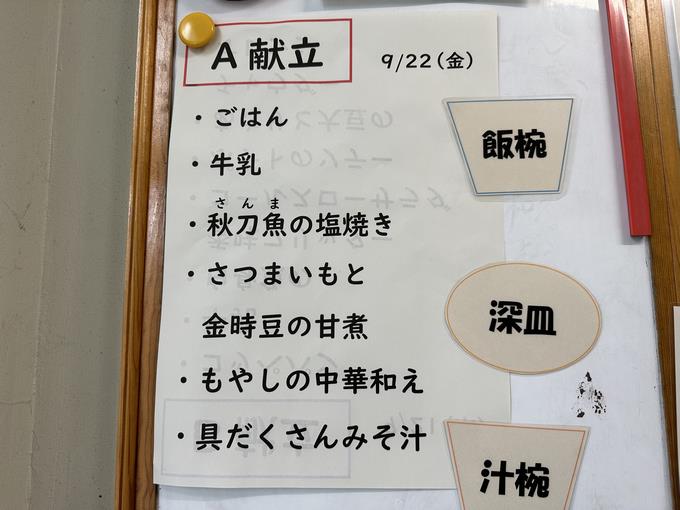 A献立 9/22(金)
・ごはん
・牛乳
さんま
・秋刀魚の塩焼き
・さつまいもと
金時豆の甘煮
・もやしの中華和え
・具だくさんみそ汁
飯椀
深皿
汁椀